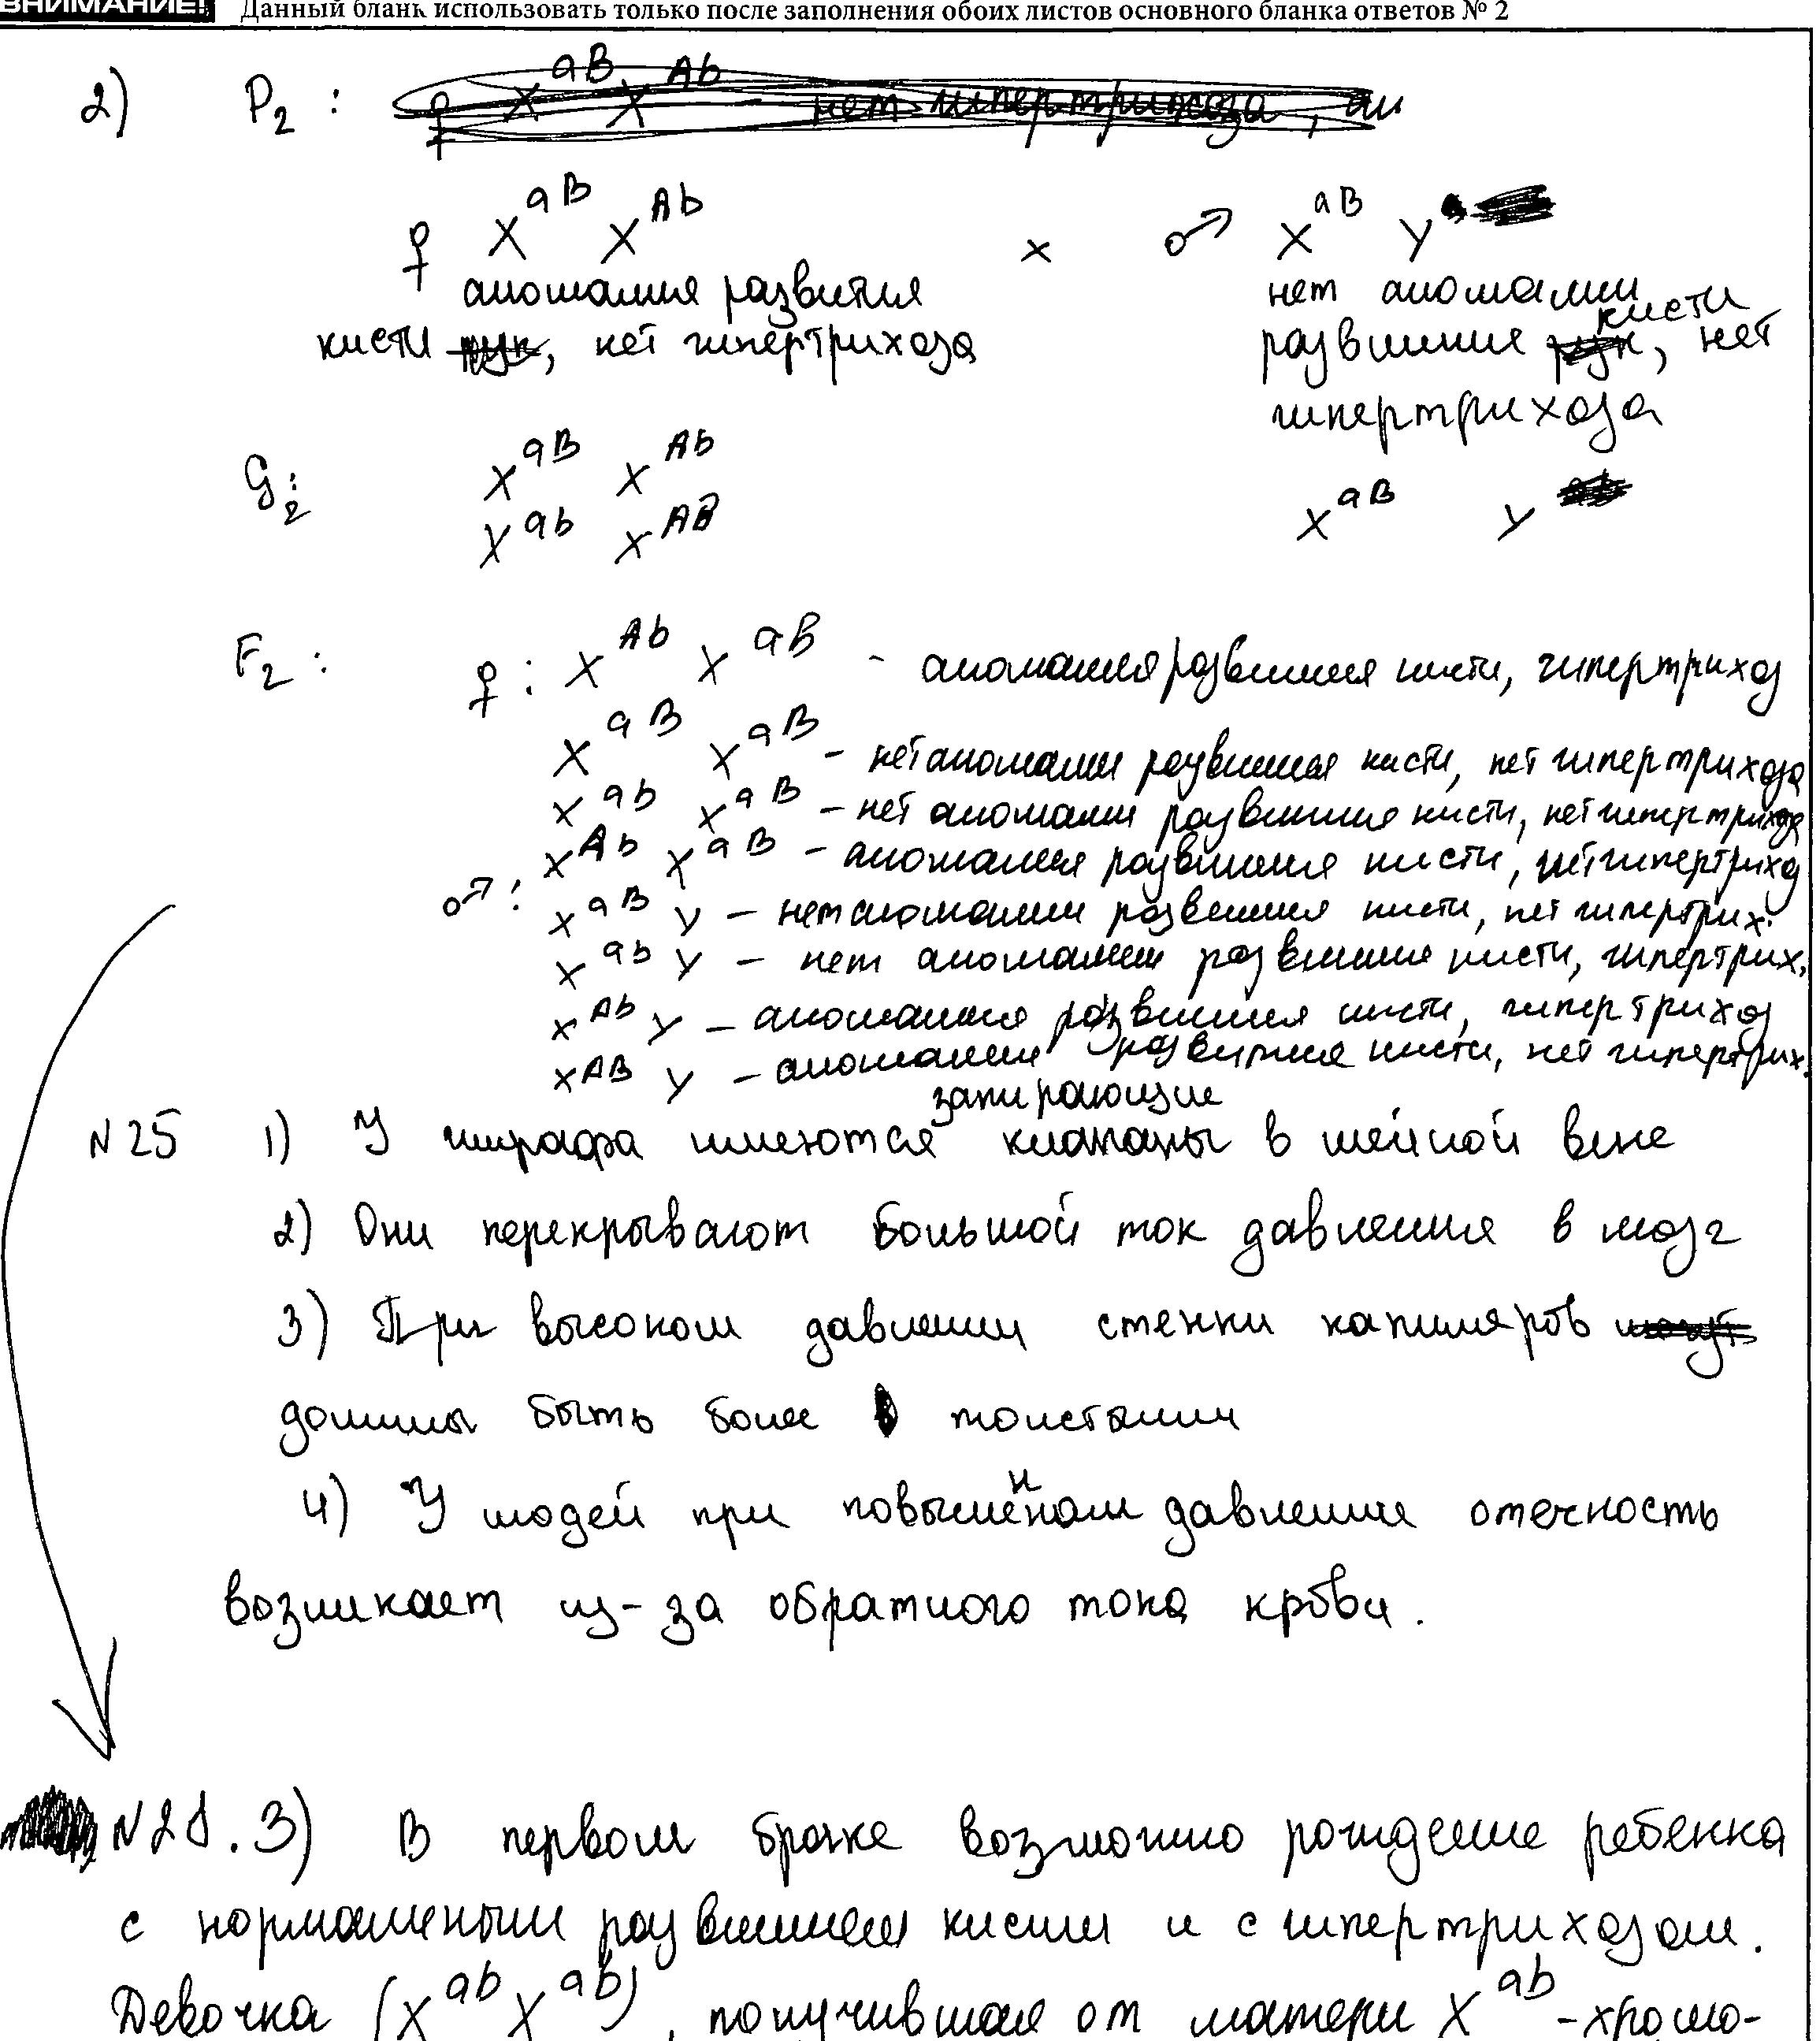 ВНИМАНИЕ! Данный бланк использовать только после заполнения обоих листов основного бланка ответов № 2
2) P₂ : ♀ X^aB X^Ab – нет гипертрихоза, ан
♀ X^aB X^Ab × ♂ X^aB Y
аномалия развития нет аномалии
кисти рук, нет гипертрихоза развития рук кисти, нет
гипертрихоза
G₂: X^aB X^Ab X^aB Y
X^ab X^AB
F₂ : ♀ : X^Ab X^aB - аномалия развития кисти, гипертрихоз
X^aB X^aB – нет аномалии развития кисти, нет гипертрихоза
X^ab X^aB – нет аномалии развития кисти, нет гипертрихоза
X^Ab X^aB – аномалия развития кисти, нет гипертрихоз
♂ : X^aB Y – нет аномалии развития кисти, нет гипертрих.
X^ab Y – нет аномалии развития кисти, гипертрих.
X^Ab Y – аномалия развития кисти, гипертрихоз
X^AB Y – аномалия развития кисти, нет гипертрих.
N25 1) У жирафа имеются запирающие клапаны в шейной вене
2) Они перекрывают большой ток давления в мозг
3) При высоком давлении стенки капиляров могут
должны быть более толстыми
4) У людей при повышенном давлении отечность
возникает из-за обратного тока крови.
N28. 3) В первом браке возможно рождение ребенка
с нормальным развитием кисти и с гипертрихозом.
Девочка (X^ab X^ab), получившая от матери X^ab -хромо-